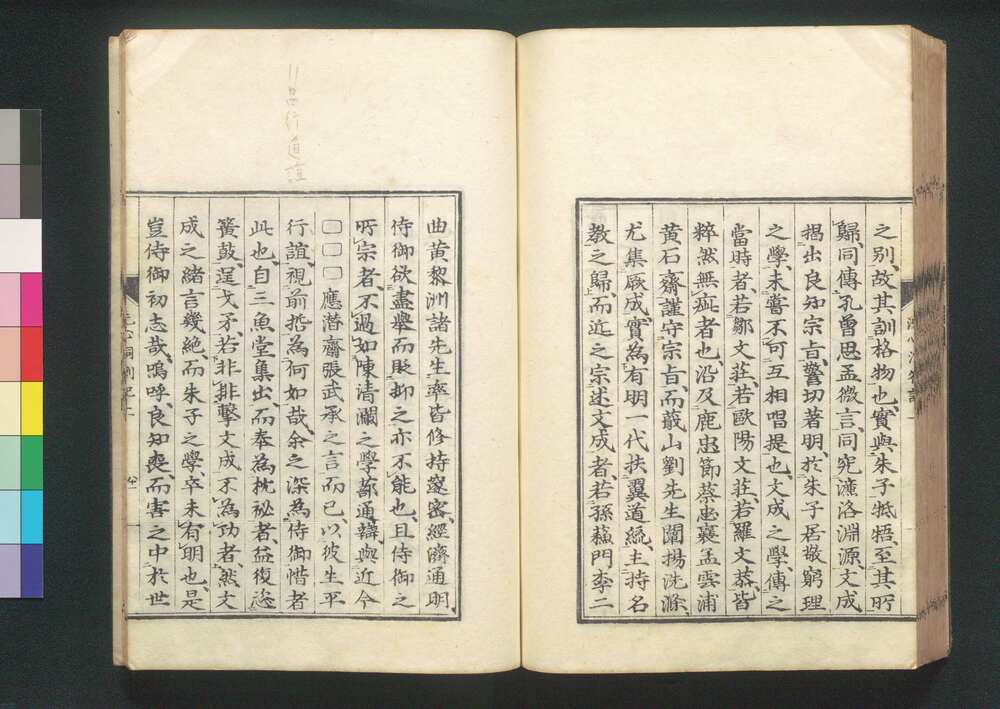 之別故其訓格物也實與朱子牴牾至其所
歸同傳孔曾思孟微言同究濂洛淵源文成
揭出良知宗旨警切著明於朱子居敬窮理
之學未嘗不可互相唱提也文成之學傳之
當時者若鄒文莊若歐陽文莊若羅文恭皆
粹然無疵者也沿及鹿忠節蔡忠襄孟雲浦
黃石齋謹守宗旨而蕺山劉先生闡揚洗滌
尤集厥成實為有明一代扶翼道統主持名
教之歸而近之宗述文成者若孫蘇門李二
曲黃黎洲諸先生率皆修持邃密經濟通明
侍御欲盡舉而貶抑之亦不能也且侍御之
所宗者不過如陳清瀾之學蔀通辯與近今
□□□應潛齋張武承之言而已以彼生平
行誼視前哲為何如哉余之深為侍御惜者
此也自三魚堂集出而奉為枕祕者益復恣
簧鼓逞戈矛若非排擊文成不為功者然文
成之緒言幾絕而朱子之學卒未有明也是
豈侍御初志哉嗚呼良知喪而害之中於世
昌行道誼